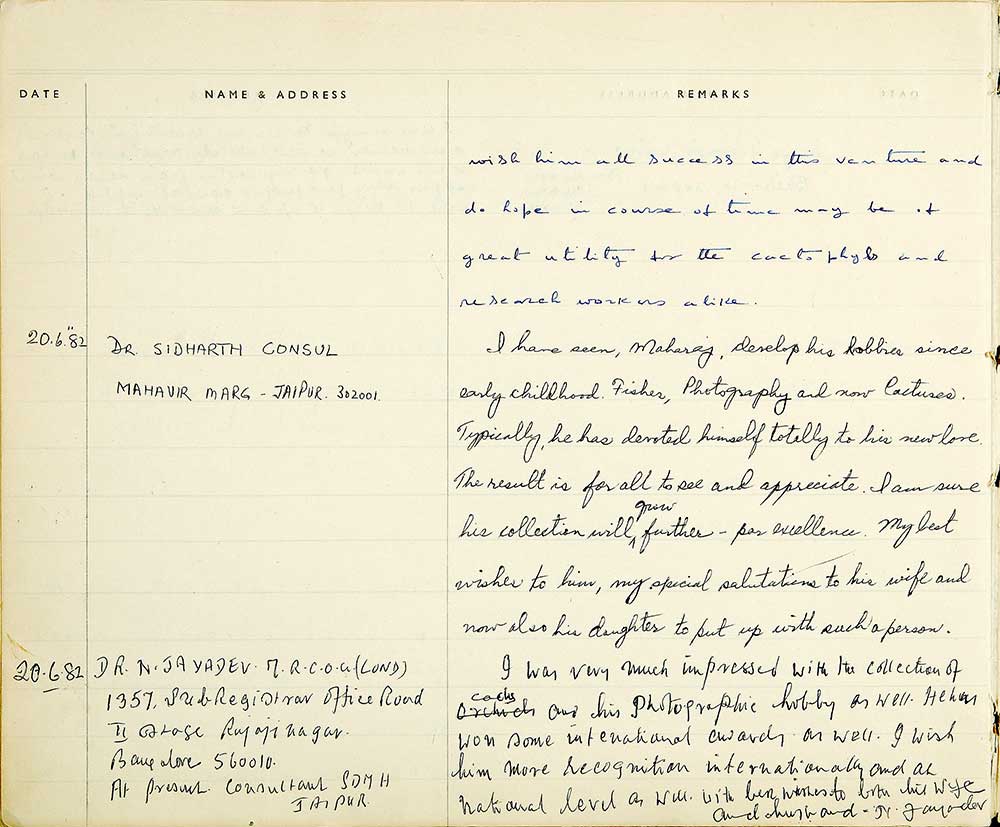 DATE NAME & ADDRESS REMARKS
wish him all success in this venture and
do hope in course of time may be of
great utility for the cactophyls and
research workers alike.
20.6."82 DR. SIDHARTH CONSUL
MAHAVIR MARG - JAIPUR. 302001.
I have seen, Maharaj, develop his hobbies since
early childhood. Fishes, Photography and now Cactuses.
Typically, he has devoted himself totally to his new love.
The result is for all to see and appreciate. I am sure
his collection will grow further - par excellence. My best
wishes to him, my special salutations to his wife and
now also his daughter to put up with such a person.
20.6.82 DR. N. JAYADEV. M.R.C.O.G (LOND)
1357, Sub Registrar Office Road
II Stage Rajajinagar.
Bangalore 560010.
At present Consultant SDMH
JAIPUR.
I was very much impressed with the collection of
cactus and his Photographic hobby as well. He has
won some international awards as well. I wish
him more recognition internationally and at
national level as well. with best wishes to both his wife
and husband - N. Jayadev